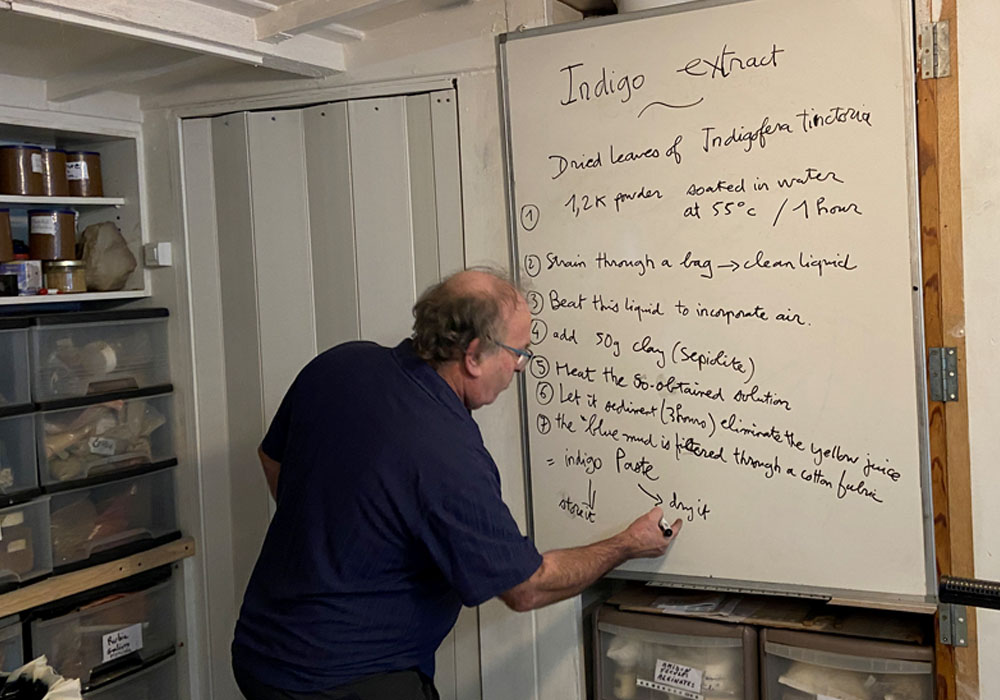 Indigo extract
Dried leaves of Indigofera tinctoria
① 1,2K powder soaked in water
at 55°c / 1 hour
② Strain through a bag → clean liquid
③ Beat this liquid to incorporate air.
④ add 50g clay (Sepiolite)
⑤ Heat the so-obtained solution
⑥ Let it sediment (3 hours) eliminate the yellow juice
⑦ the "blue mud is filtered through a cotton fabric
= indigo Paste
store it → dry it